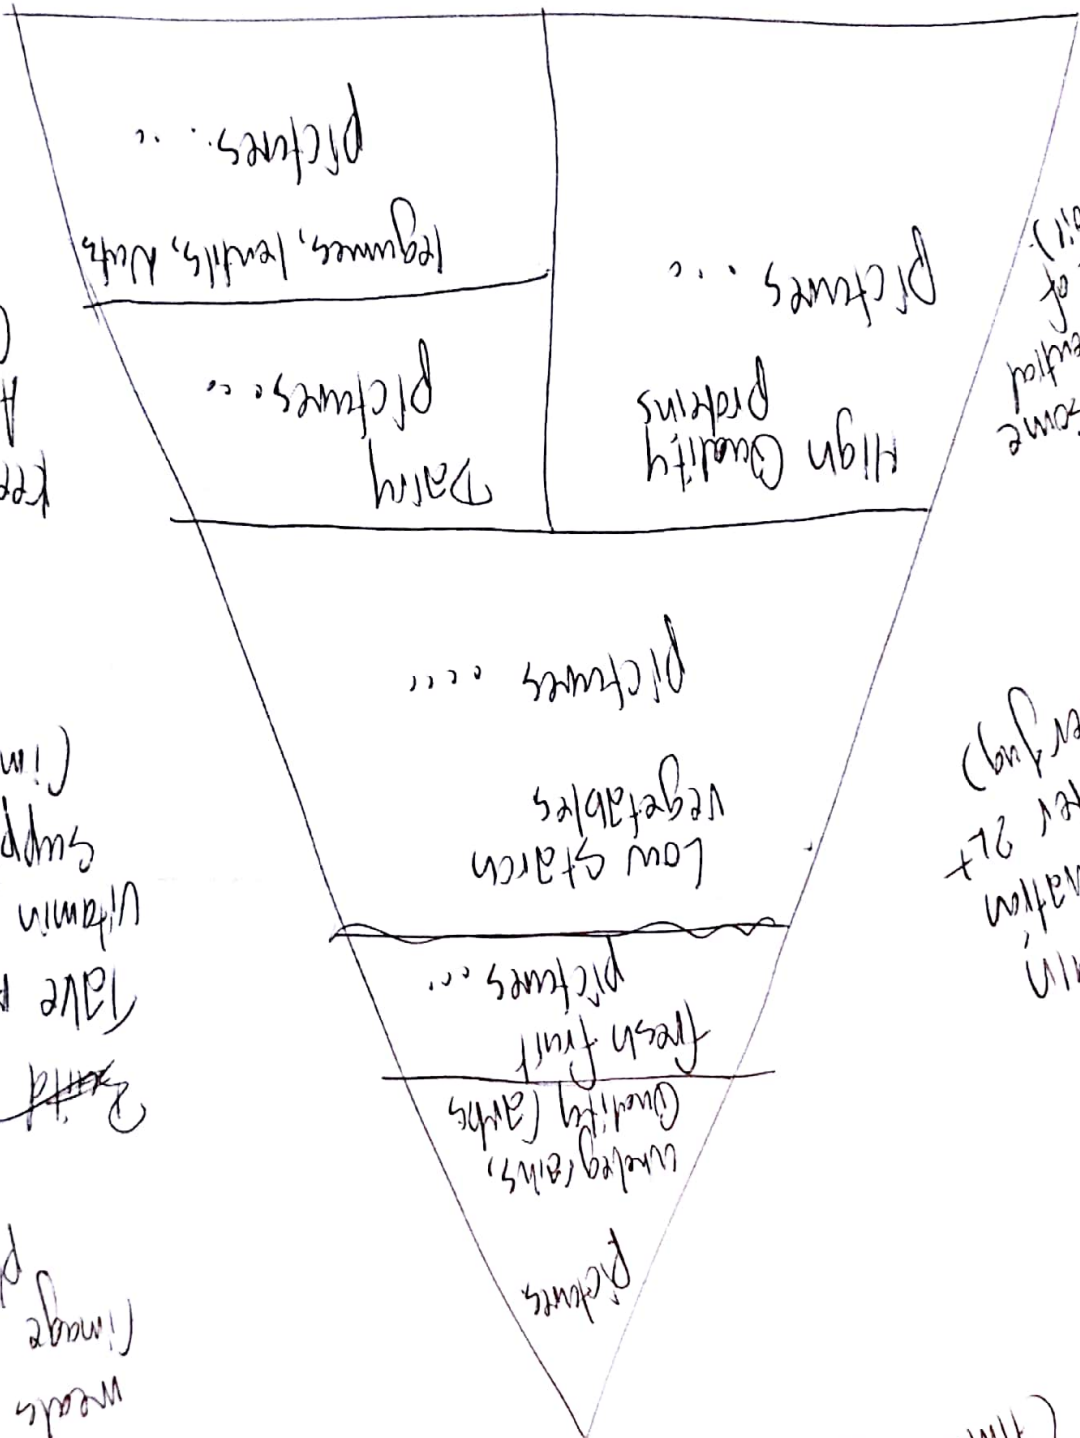 pictures
wholegrains,
Quality Carbs
fresh fruit
pictures...
Low starch
vegetables
pictures ....
High Quality
proteins
pictures ...
Dairy
pictures...
legumes, lentils, Nuts
pictures. ...
meals
(image
Build
Take
vitamin
supp
(im
kee
A
some
of
2L+